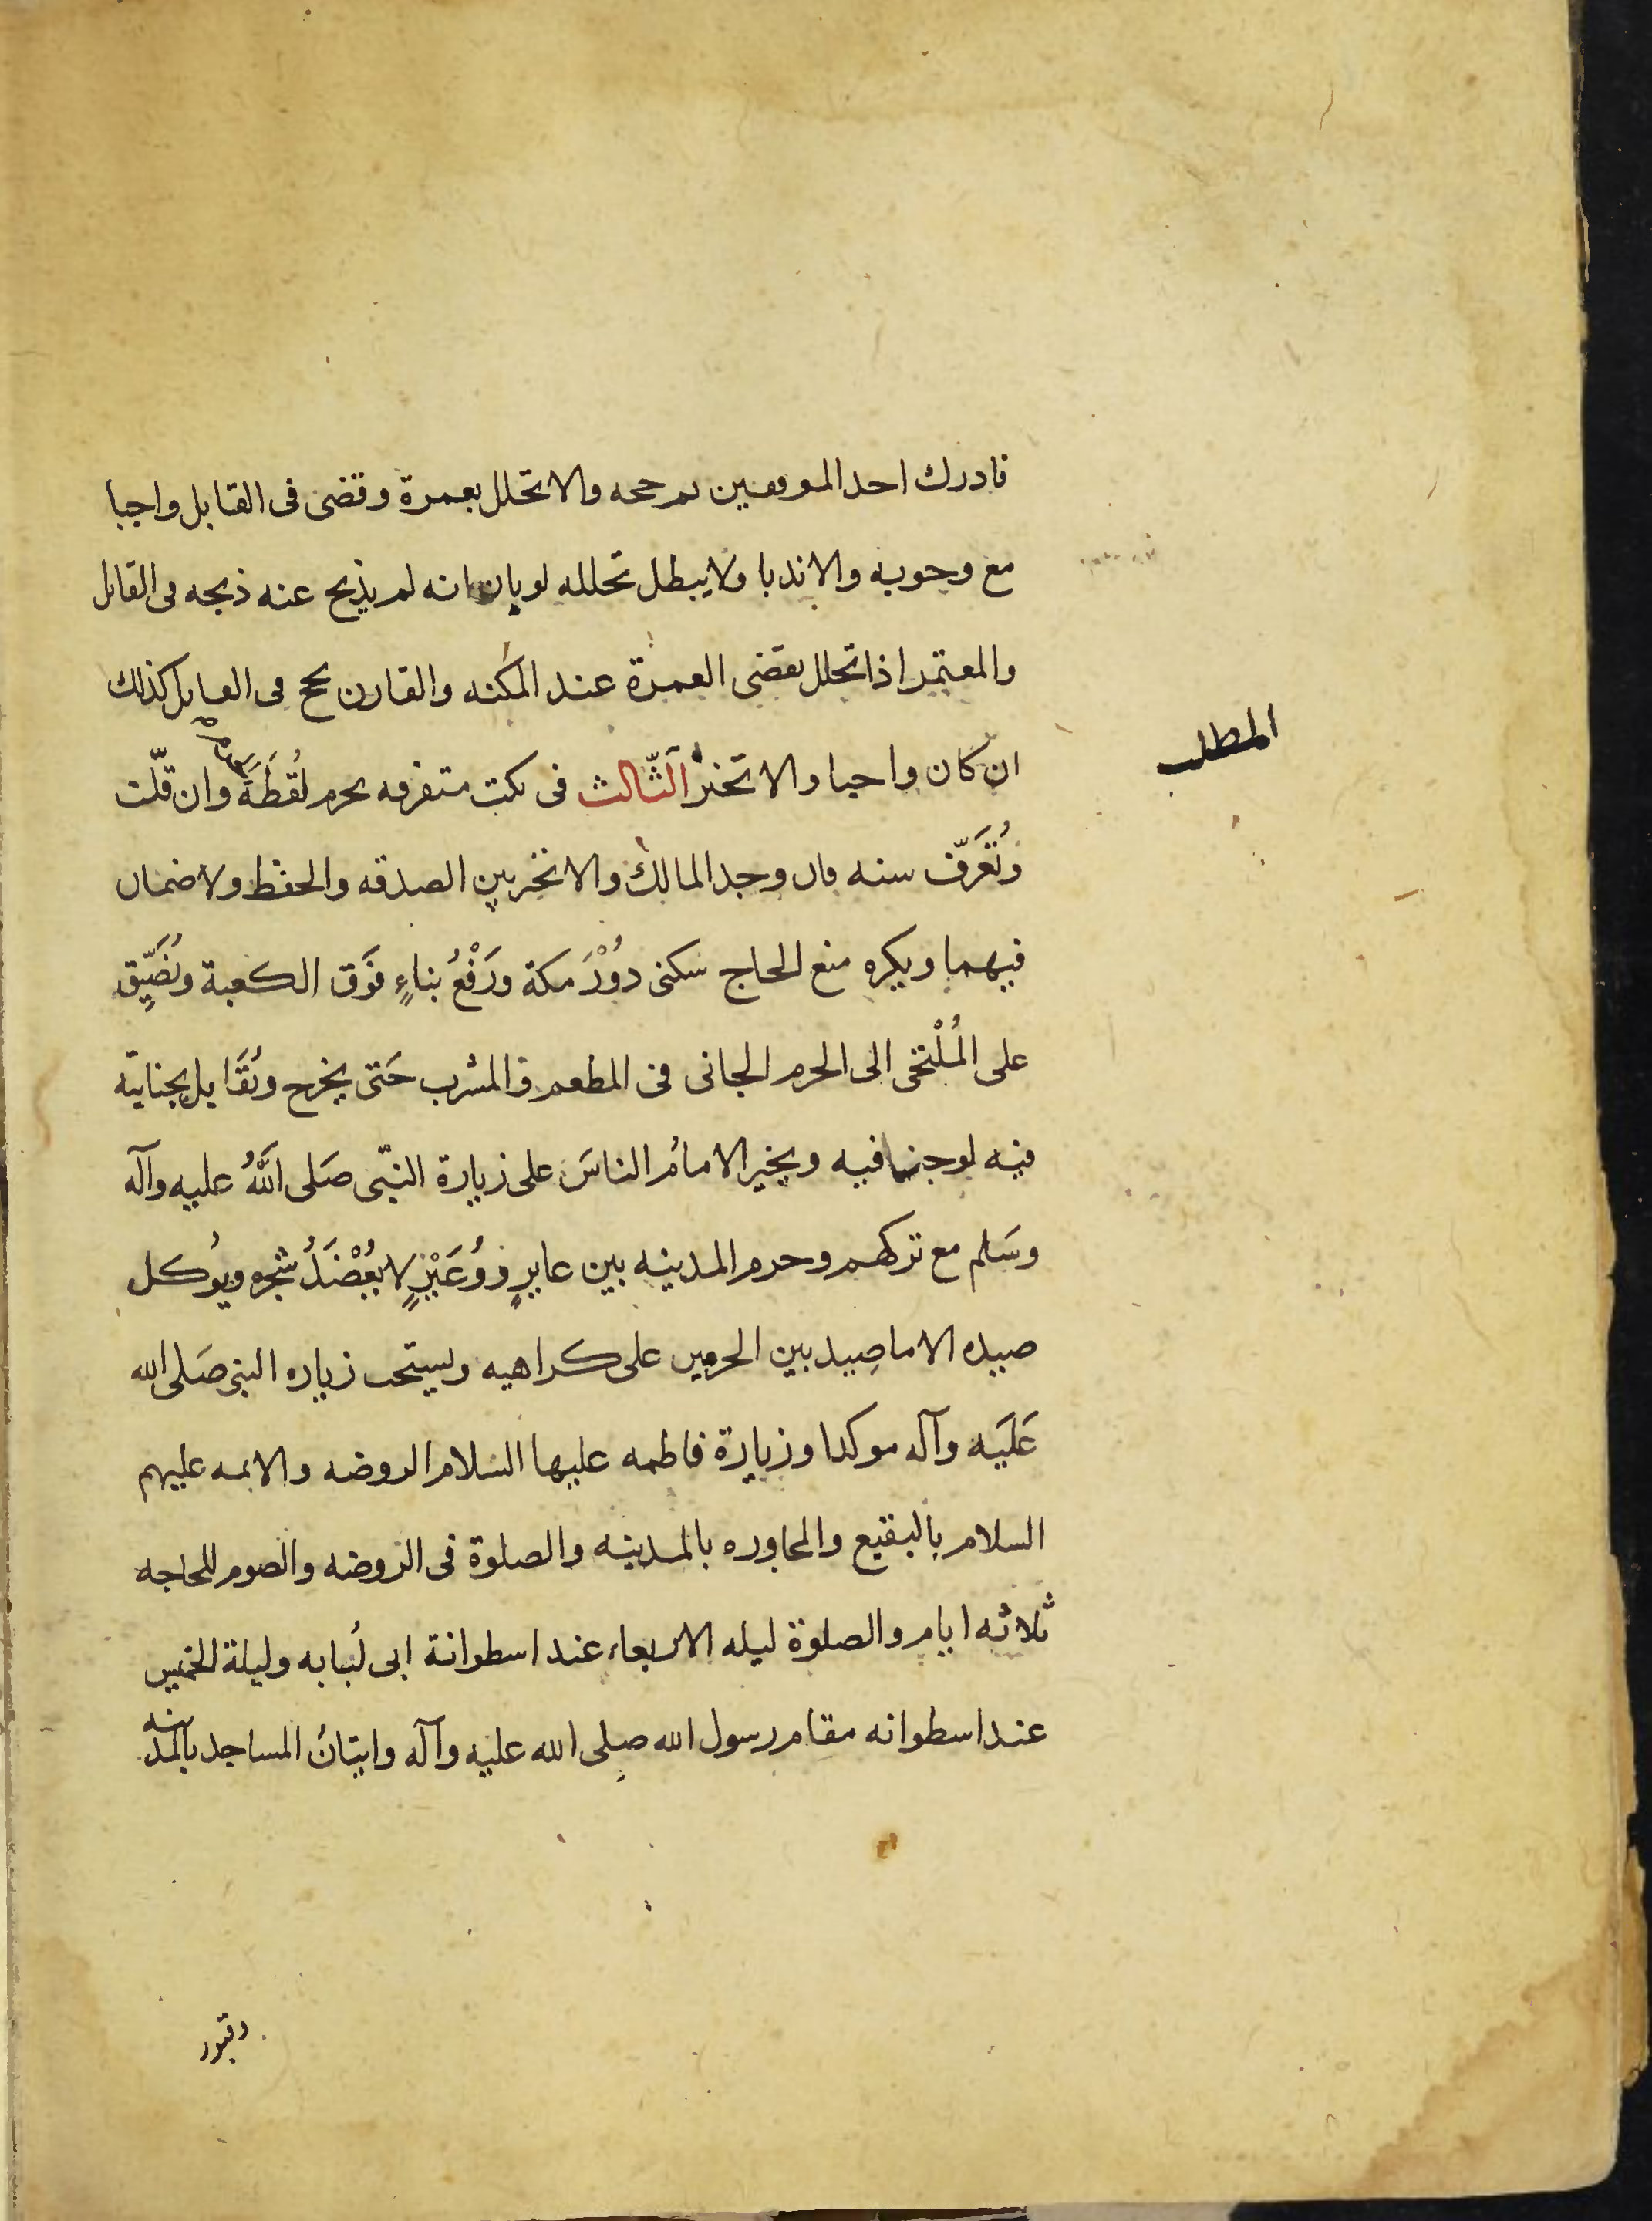 فادرك احد الموقفين تم حجه والا تحلل بعمرة وقضى فى القابل واجبا
مع وجوبه والا ندبا ولا يبطل تحلله لو بان انه لم يذبح عنه ذبحه فى القابل
والمعتمر اذا تحلل يقضى العمرة عند المكنه والقارن يحج فى القابل كذلك
ان كان واجبا والا تخير الثّالث فى نكت متفرقه يحرم لُقطَةَ وان قلّت
وتُعَرّف سنه فان وجد المالك والا تخير بين الصدقه والحفظ ولا ضمان
فيهما ويكره منع الحاج سكنى دُوْرَ مكة ورَفْعُ بناءٍ فَوق الكعبة ويُضَيِّق
على المُلْتجى الى الحرم الجانى فى المطعم والمشرب حَتى يخرج ويُقَابل بجنايته
فيه لو جنا فيه ويخير الامامُ الناسَ على زيارة النبّى صَلى اللَّهُ عليه وآله
وسَلم مع تركهم وحرم المدينه بين عايرٍ ووُعَيْرٍ لا يُعْضَدُ شجره ويُوكل
صيده الا ما صِيد بين الحرمين على كراهيه ويستحب زياره النبى صَلى الله
عَلَيه وآله موكدا وزيارة فاطمه عليها السلام الروضه والايمه عليهم
السلام بالبقيع والمجاوره بالمدينه والصلوة فى الروضه والصوم للحاجه
ثلاثه ايام والصلوة ليله الاربعاء عند اسطوانة ابى لُبابه وليلة الخميس
عند اسطوانه مقام رسول الله صلى الله عليه وآله واتيانُ المساجد بالمدينه
المطلب
وقبور